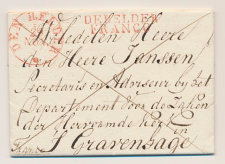 DEN HELDER
DEHELDER
FRANCO
Heere
den Heere Janssen,
Secretaris en Adviseur bij het
Departement voor de Zaken
der Hervormde kerk
in
S Gravenhage